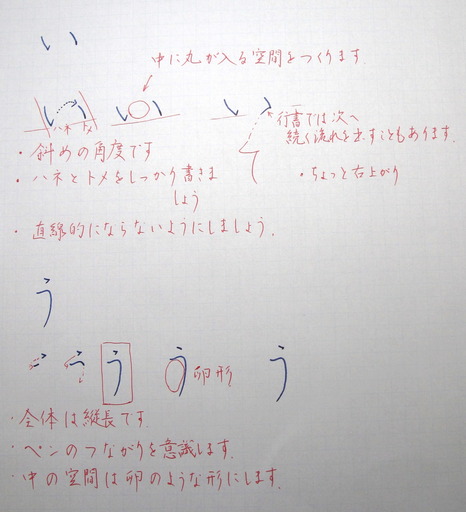 い
中に丸が入る空間をつくります。
い い い
ハネ トメ
行書では次へ
続く流れを出すこともあります。
・斜めの角度です
・ハネとトメをしっかり書きま
しょう
・ちょっと右上がり
・直線的にならないようにしましょう。
う
う う う
卵形
・全体は縦長です。
・ペンのつながりを意識します。
・中の空間は卵のような形にします。